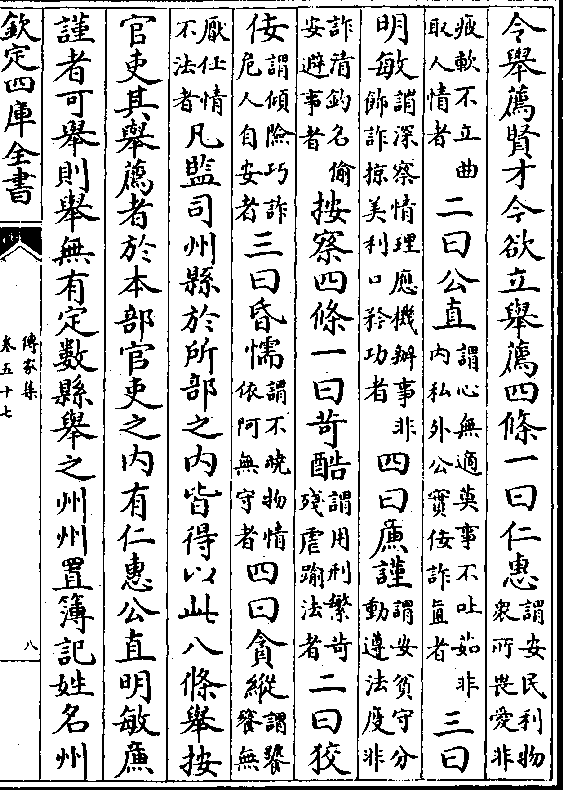 令舉薦賢才今欲立舉薦四條一曰仁惠謂安民利物衆所畏愛非
疲軟不立曲取人情者二曰公直謂心無適莫事不吐茹非内私外公實佞詐直者三曰
明敏謂深察情理應機辦事非飾詐掠美利口矜功者四曰廉謹謂安貧守分動遵法度非
詐清釣名偷安避事者按察四條一曰苛酷謂用刑繁苛殘虐踰法者二曰狡
佞謂傾險巧詐危人自安者三曰昏懦謂不曉物情依阿無守者四曰貪縱謂饕餮無
厭任情不法者凡監司州縣於所部之内皆得以此八條舉按
官吏其舉薦者於本部官吏之内有仁惠公直明敏廉
謹者可舉則舉無有定數縣舉之州州置簿記姓名州
欽定四庫全書
傳家集
卷五十七
八